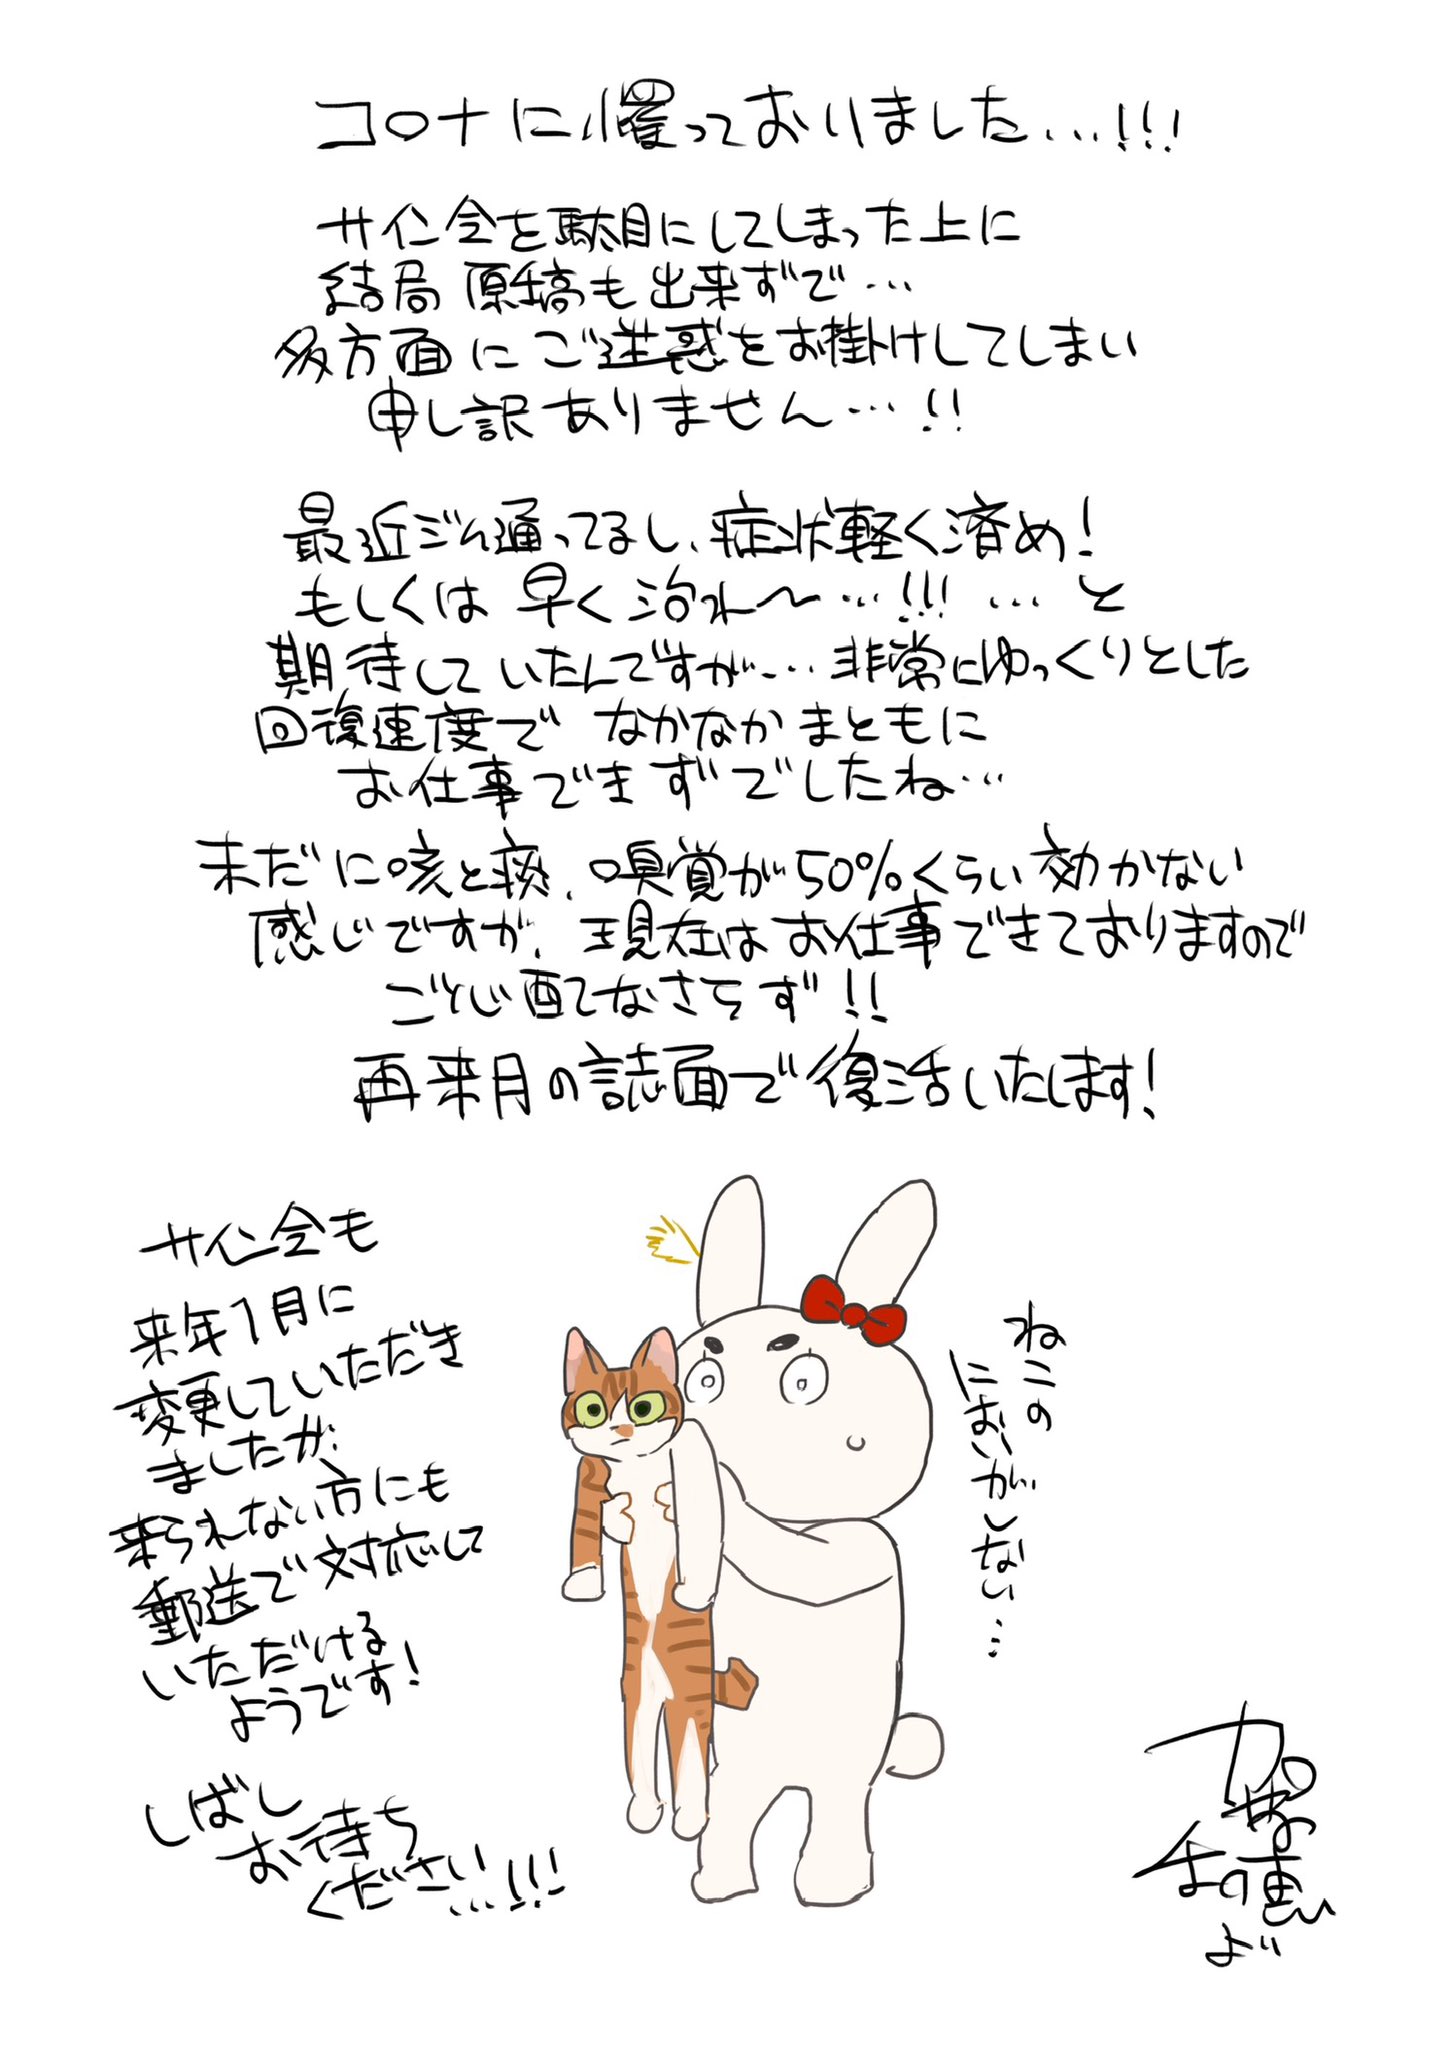 コロナに罹っておりました…!!!
サイン会を駄目にしてしまった上に
結局原稿も出来ずで…
多方面にご迷惑をお掛けしてしまい
申し訳ありません…!!
最近ジム通ってるし、症状軽く済め!
もしくは早く治れ〜…!!!…と
期待していたんですが…非常にゆっくりとした
回復速度でなかなかまともに
お仕事できずでしたね…
未だに咳と痰、嗅覚が50%くらい効かない
感じですが、現在はお仕事できておりますので
ご心配なさらず!!
再来月の誌面で復活いたします!
サイン会も
来年1月に
変更していただき
ましたが、
来られない方にも
郵送で対応して
いただける
ようです!
しばし
お待ち
ください…!!!
ねこの
においがしない…
より